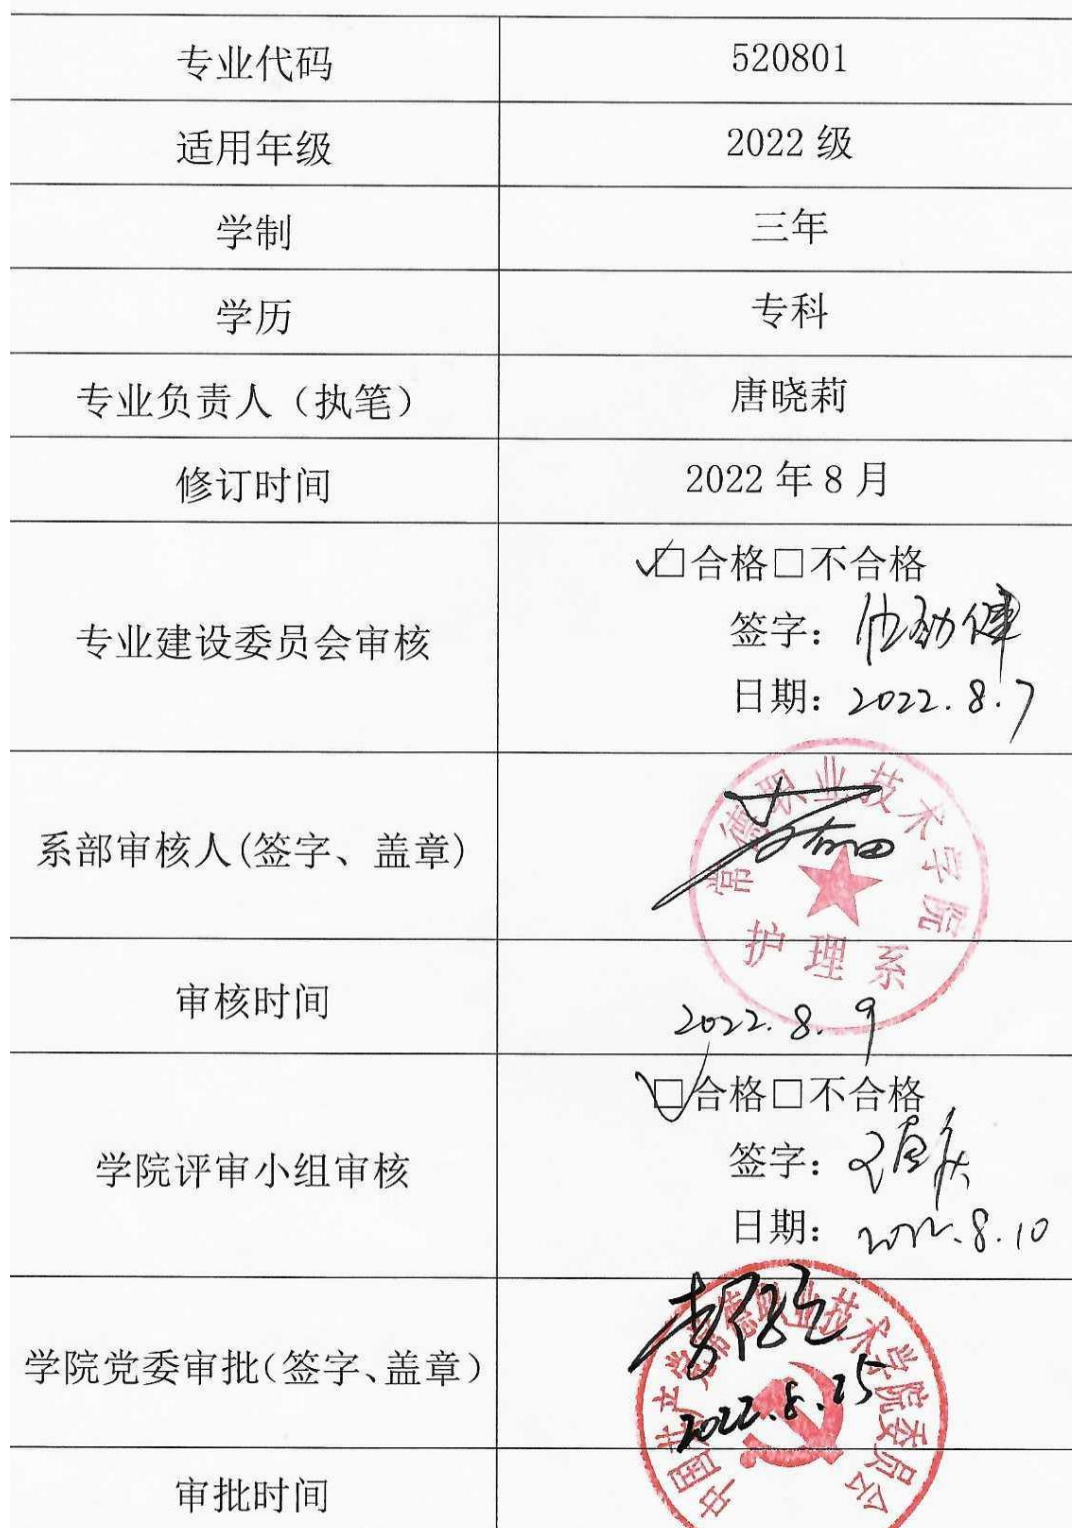 专业代码 520801
适用年级 2022 级
学制 三年
学历 专科
专业负责人（执笔） 唐晓莉
修订时间 2022 年 8 月
专业建设委员会审核
☑合格□不合格
签字：
日期：2022.8.7
系部审核人(签字、盖章)
常德职业技术学院
护理系
审核时间 2022.8.9
学院评审小组审核
☑合格□不合格
签字：
日期：2022.8.10
学院党委审批(签字、盖章)
中国共产党常德职业技术学院委员会
2022.8.25
审批时间